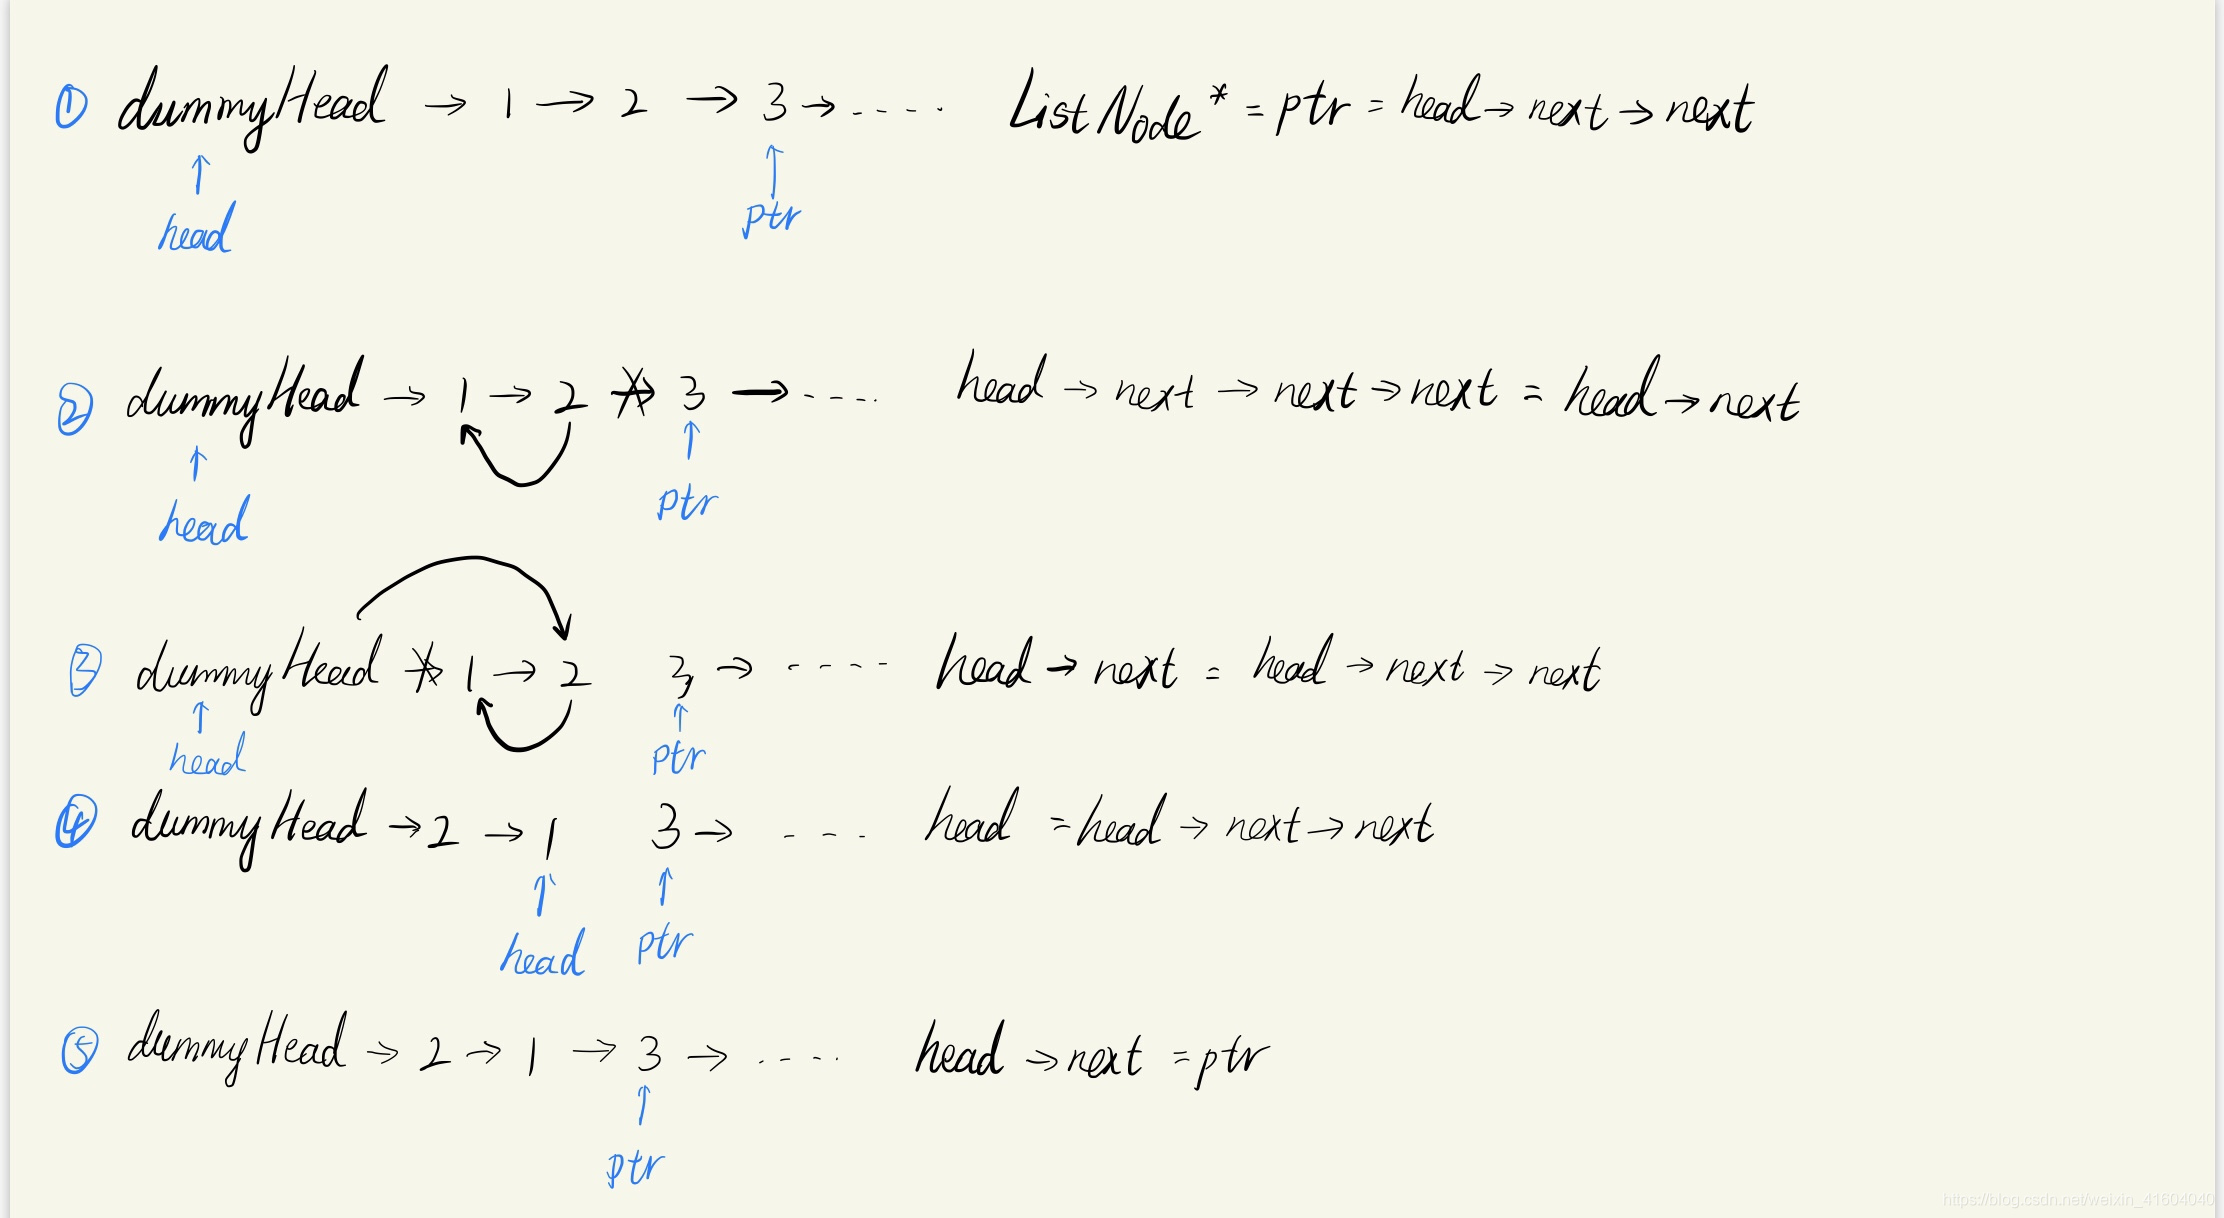 ① dummyHead → 1 → 2 → 3 → ---- ListNode* = ptr = head → next → next
head ptr
② dummyHead → 1 → 2 → 3 → ---- head → next → next → next = head → next
head ptr
③ dummyHead → 1 → 2 3 → ---- head → next = head → next → next
head ptr
④ dummyHead → 2 → 1 3 → --- head = head → next → next
head ptr
⑤ dummyHead → 2 → 1 → 3 → ---- head → next = ptr
ptr
https://blog.csdn.net/weixin_41604040